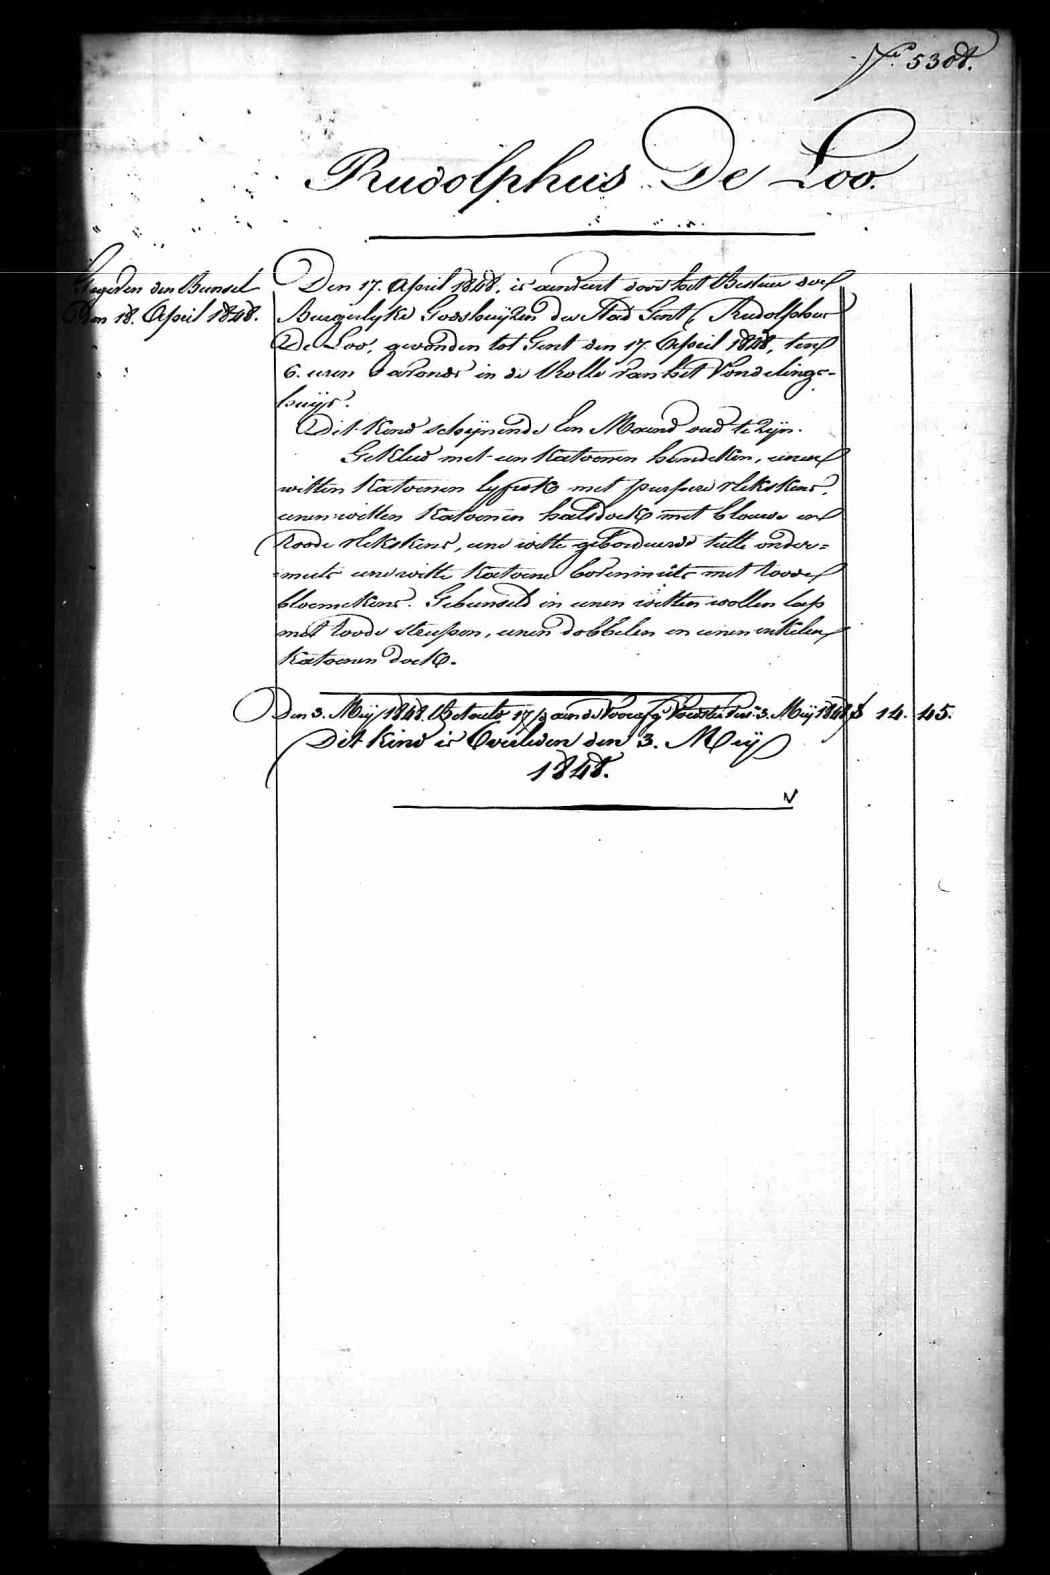 N.º 5308.
Rudolphus De Loo.
Gegeven den Bunsel
Den 18. April 1848.
Den 17. April 1848. is aenveirt door het Bestier der
Burgerlyke Godshuijzen der Stad Gent, Rudolphus
De Loo, gevonden tot Gent den 17. April 1848, ten
6. uren 's avonds in de Rolle van het Vondelings=
huijs.
Dit Kind schynende Een Maend oud te zyn.
Gekleed met een Katoenen hemdeken, eenen
witten Katoenen lyfrok met purpere vlekskens,
eenen witten Katoenen halsdoek met blouwe en
roode vlekskens, eene witte geborduerde tulle onder=
muts eene witte Katoene bovenmuts met roode
bloemekens. Gebunseld in eenen witten wollen lap
met roode streepen, eenen dobbelen en eenen enkelen
Katoenen doek.
Den 3. Meij 1848. Betaeld 17 aen de Voorz. Voedster 3. Meij 1848 14. 45.
Dit Kind is Overleden den 3. Meij
1848.